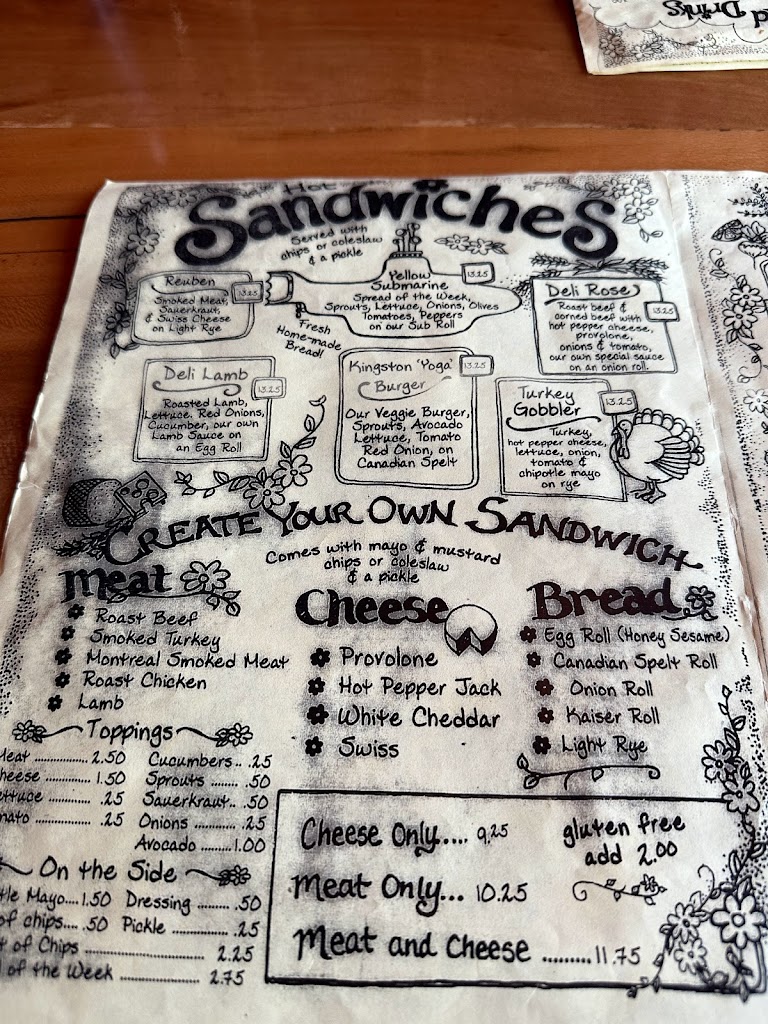 d Drinks
Hot
Sandwiches
Served with
chips or coleslaw
& a pickle
Reuben
13.25
Smoked Meat,
Sauerkraut,
& Swiss Cheese
on Light Rye
Yellow
Submarine
13.25
Spread of the Week,
Sprouts, Lettuce, Onions, Olives
Tomatoes, Peppers
on our Sub Roll
Fresh
Home-made
Bread!
Deli Rose
13.25
Roast beef &
corned beef with
hot pepper cheese,
provolone,
onions & tomato,
our own special sauce
on an onion roll.
Deli Lamb
13.25
Roasted Lamb,
Lettuce, Red Onions,
Cucumber, our own
Lamb Sauce on
an Egg Roll
Kingston 'Yoga'
Burger
13.25
Our Veggie Burger,
Sprouts, Avocado
Lettuce, Tomato
Red Onion, on
Canadian Spelt
Turkey
Gobbler
13.25
Turkey,
hot pepper cheese,
lettuce, onion,
tomato &
chipotle mayo
on rye
Create Your Own Sandwich
Comes with mayo & mustard
chips or coleslaw
& a pickle
Meat
Roast Beef
Smoked Turkey
Montreal Smoked Meat
Roast Chicken
Lamb
Cheese
Provolone
Hot Pepper Jack
White Cheddar
Swiss
Bread
Egg Roll (Honey Sesame)
Canadian Spelt Roll
Onion Roll
Kaiser Roll
Light Rye
Toppings
Meat .............. 2.50 Cucumbers.. .25
heese ............ 1.50 Sprouts ....... .50
ettuce ............ .25 Sauerkraut.. .50
mato ............. .25 Onions .......... .25
Avocado ........1.00
On the Side
tle Mayo....1.50 Dressing ........ .50
of chips.... .50 Pickle ............ .25
t of Chips ........................ 2.25
l of the Week .................. 2.75
Cheese Only.... 9.25
Meat Only... 10.25
Meat and Cheese .........11.75
gluten free
add 2.00